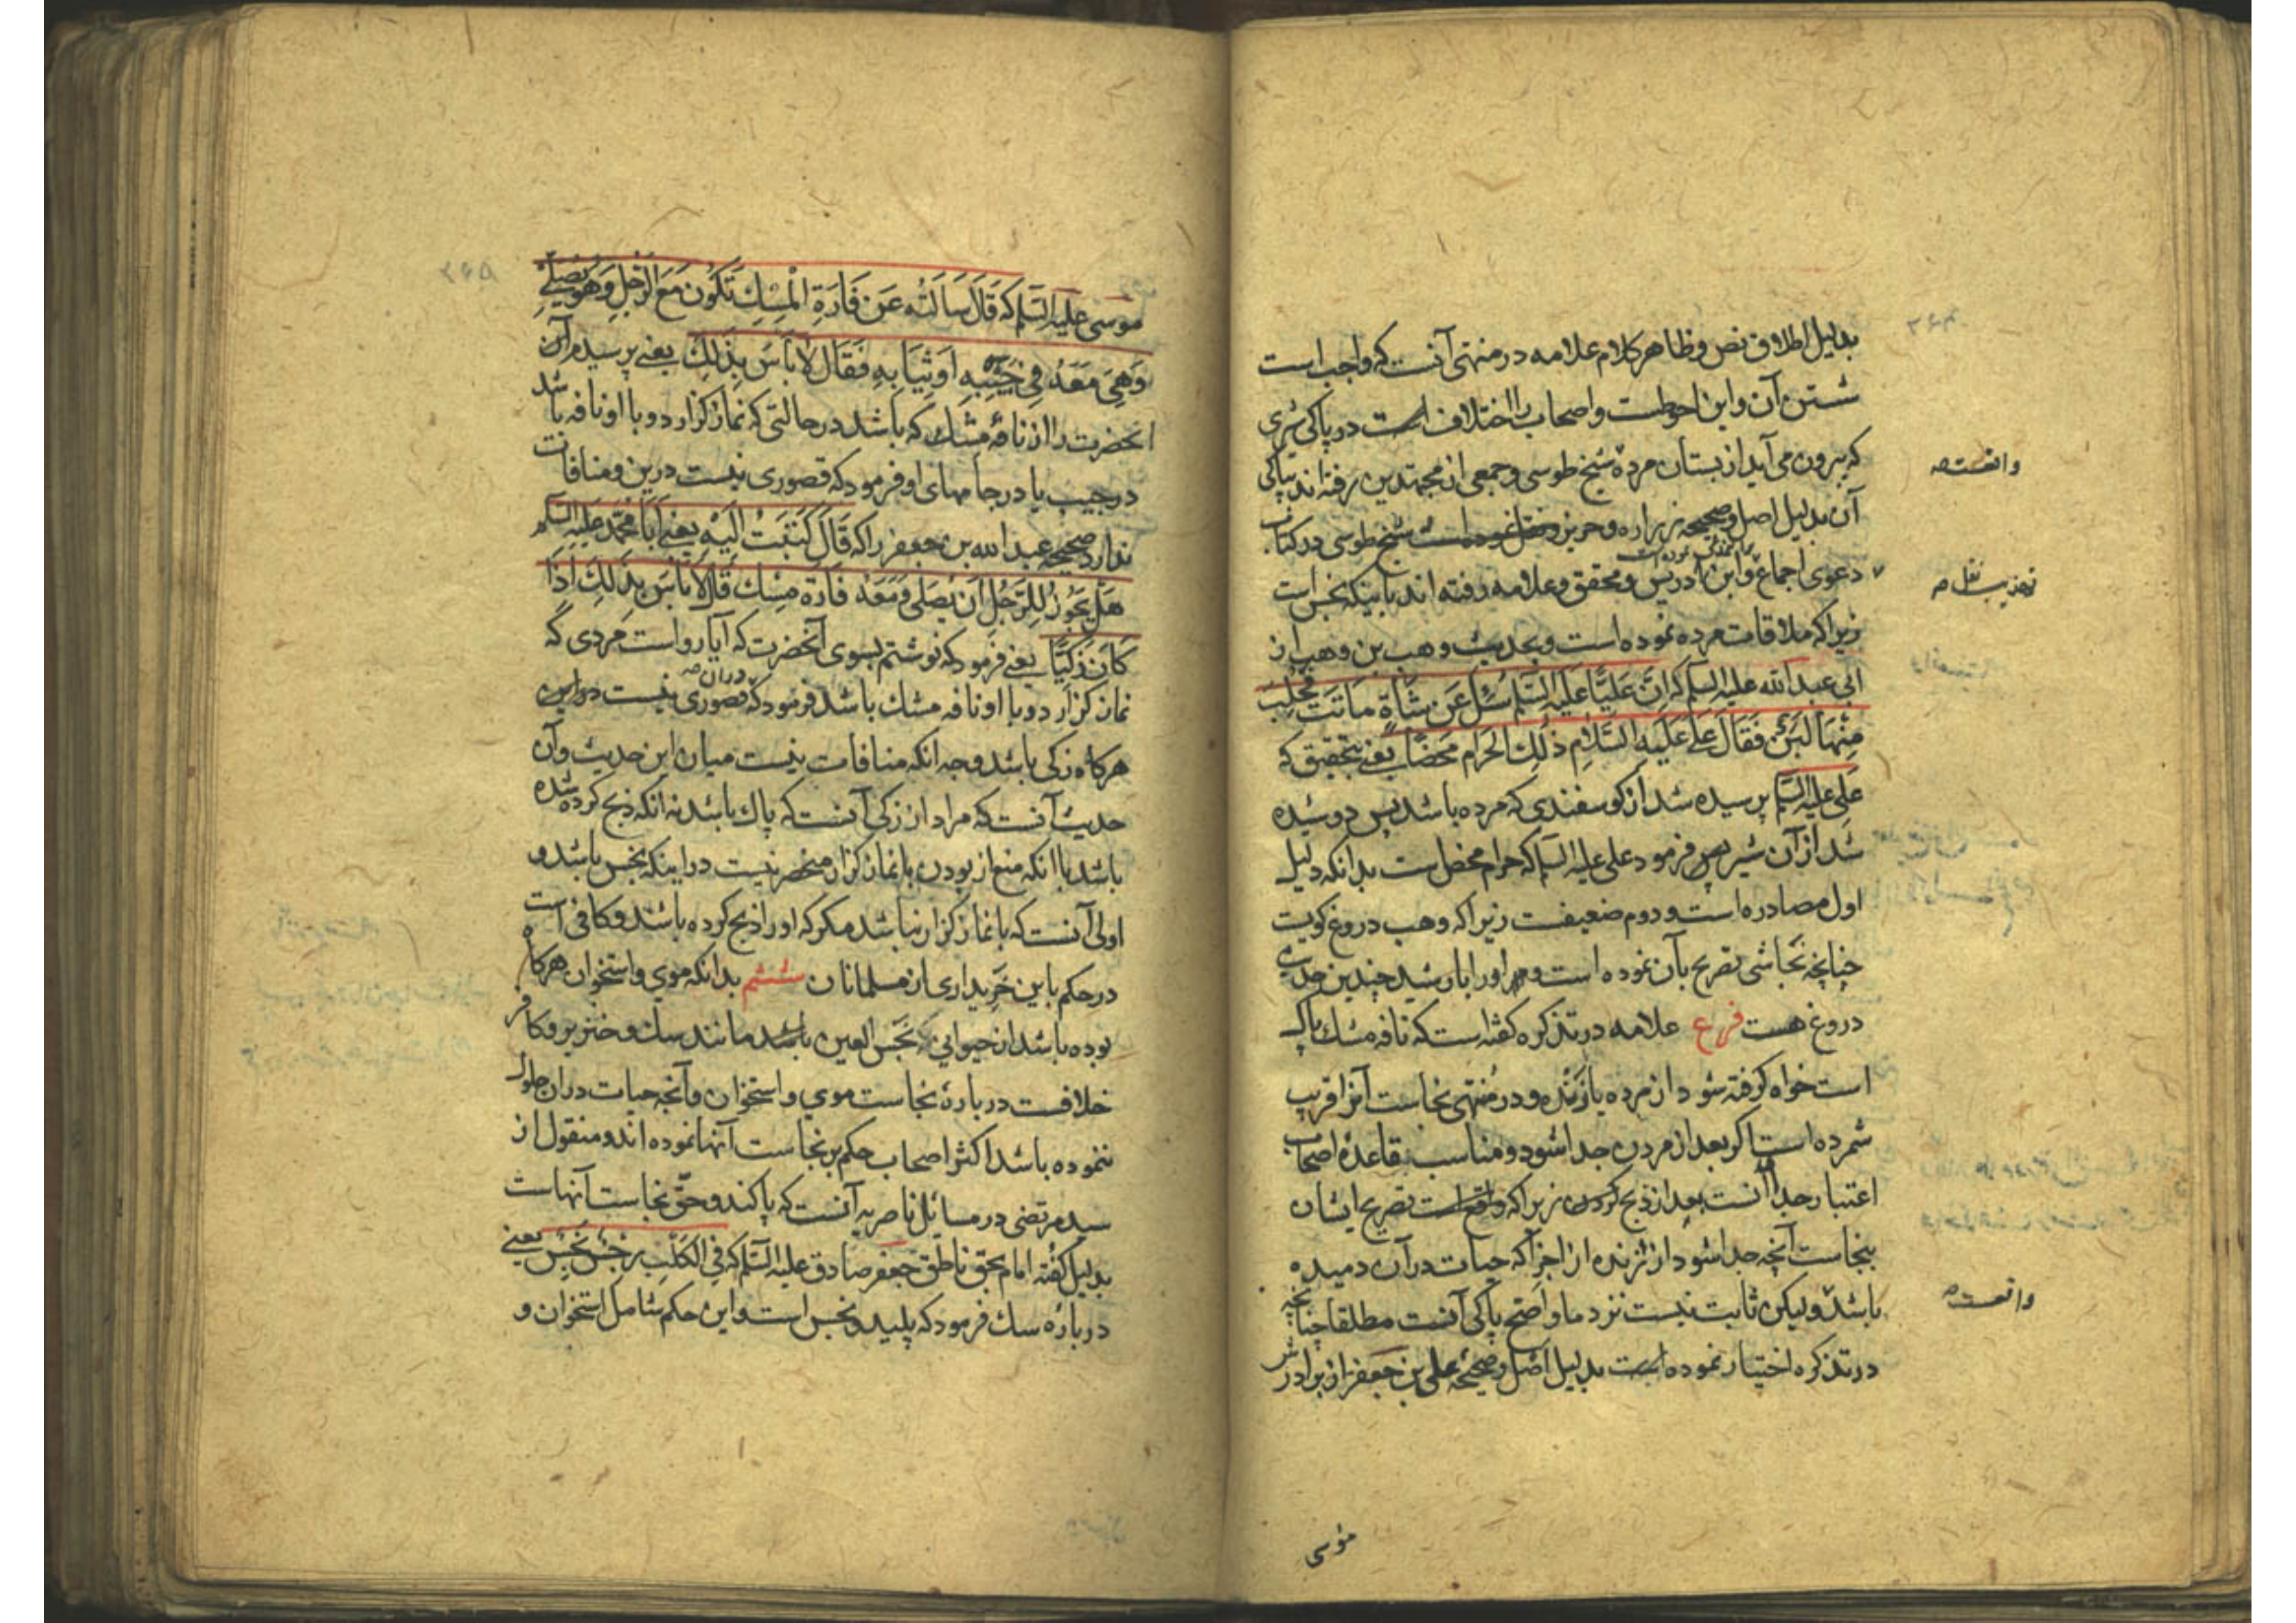 بدلیل اطلاق نص و ظاهر کلام علامه در منتهی آنست که واجب است
شستن آن و این احوطست و اصحاب را اختلاف است در پاکی شیری
که بیرون می آید از پستان مرده شیخ طوسی و جمعی از مجتهدین رفته اند بپاکی
آن بدلیل اصل و صحیحه زراره و حریز و شیخ طوسی در کتاب
دعوی اجماع و ابن ادریس و محقق و علامه رفته اند باینکه نجس است
زیرا که ملاقات مرده نموده است و بحدیث وهب بن وهب از
ابی عبد الله علیه السلم که اِنَّ عَلیًّا علیه السلم سُئِلَ عَن شَاةٍ مَاتَت فَحُلِبَ
مِنْهَا لَبَنٌ فَقَالَ عَلی عَلَیهِ السَّلامِ ذٰلِكَ الحَرام مَحضًا یعنی بتحقیق که
علی علیه السلم پرسیده شد از کوسفندی که مرده باشد پس دوشیده
شد از آن شیر پس فرمود علی علیه السلم که حرام محض است بدانکه دلیل
اول مصادره است و دوم ضعیفست زیرا که وهب دروغ کویست
چنانچه نجاشی تصریح بآن نموده است و او را با رشید چندین حدیث
دروغ هست فرع علامه در تذکره کفته است که نافه مشك پاك
است خواه کرفته شود از مرده یا زنده و در منتهی نجاست آنرا اقرب
شمرده است اکر بعد از مردن جدا شود و مناسب بقاعدهٔ اصحاب
اعتبار جدا آنست بعد از ذبح کردن زیرا که واقع است تصریح ایشان
بنجاست آنچه جدا شود از زنده از اجزا که حیات در آن دمیده
باشد و لیکن ثابت نیست نزد ما و اصح پاکی آنست مطلقا چنانچه
در تذکره اختیار نموده است بدلیل اصل و صحیحه علی بن جعفر از برادرش
موسی
واقعست
تهذیب نقل
واقعست
موسی علیه السلم که قَالَ سَاَلتُه عَن فَارَةِ الْمِسكِ تَکُون مَعَ الرَّجُلِ وَهُوَ یُصَلّی
وَهِیَ مَعَهُ فی جَیبِهِ اَو ثِیَابِهِ فَقَالَ لا بَاسَ بِذٰلِكَ یعنی پرسیدم از آن
انحضرت را از نافهٔ مشك که باشد در حالتی که نماز کزارد و با او نافه باشد
در جیب یا در جامهای او فرمود که قصوری نیست درین و منافات
ندارد صحیحه عبد الله بن جعفر را که قَالَ کَتَبتُ اِلَیهِ یعنی اَبَا مُحَمّد علیه السلم
هَل یَجُوزُ لِلرَّجُلِ اَن یُصَلّی وَمَعَهُ فَارَة مِسك قَالَ لا بَاسَ بِذٰلِكَ اِذَا
کَانَ ذَکِیًّا یعنی فرمود که نوشتم بسوی آنحضرت که آیا رواست مردی که
نماز کزارد و با او نافه مشك باشد فرمود که قصوری نیست در این
دران
هرکاه ذکی باشد و جه انکه منافات نیست میان این حدیث و آن
حدیث آنست که مراد از ذکی آنست که پاك باشد نه آنکه ذبح کرده شده
باشد با انکه منع از بودن با نماز کزار منحصر نیست در اینکه نجس باشد و
اولی آنست که با نماز کزار نباشد مکر که او را ذبح کرده باشند و کافی است
در حکم باین خریداری از مسلمانان ششم بدانکه موی و استخوان هرکاه
بوده باشد از حیوانی که نجس العین باشد مانند سك و خنزیر و کافر
خلافست در بارهٔ نجاست موی و استخوان و آنچه حیات دران حلول
ننموده باشد اکثر اصحاب حکم بر نجاست آنها نموده اند و منقول از
سید مرتضی در مسائل ناصریه آنست که پاکند و حقّ نجاست آنهاست
بدلیل کفته امام بحق ناطق جعفر صادق علیه السلم که فی الکَلبِ رِجسٌ نَجِسٌ یعنی
در باره سك فرمود که پلید و نجس است و این حکم شامل استخوان و